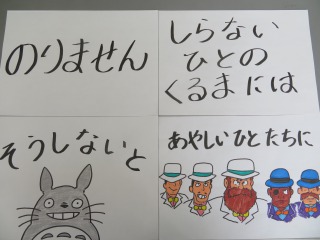 のりません
しらない
ひとの
くるまには
そうしないと
あやしいひとたちに